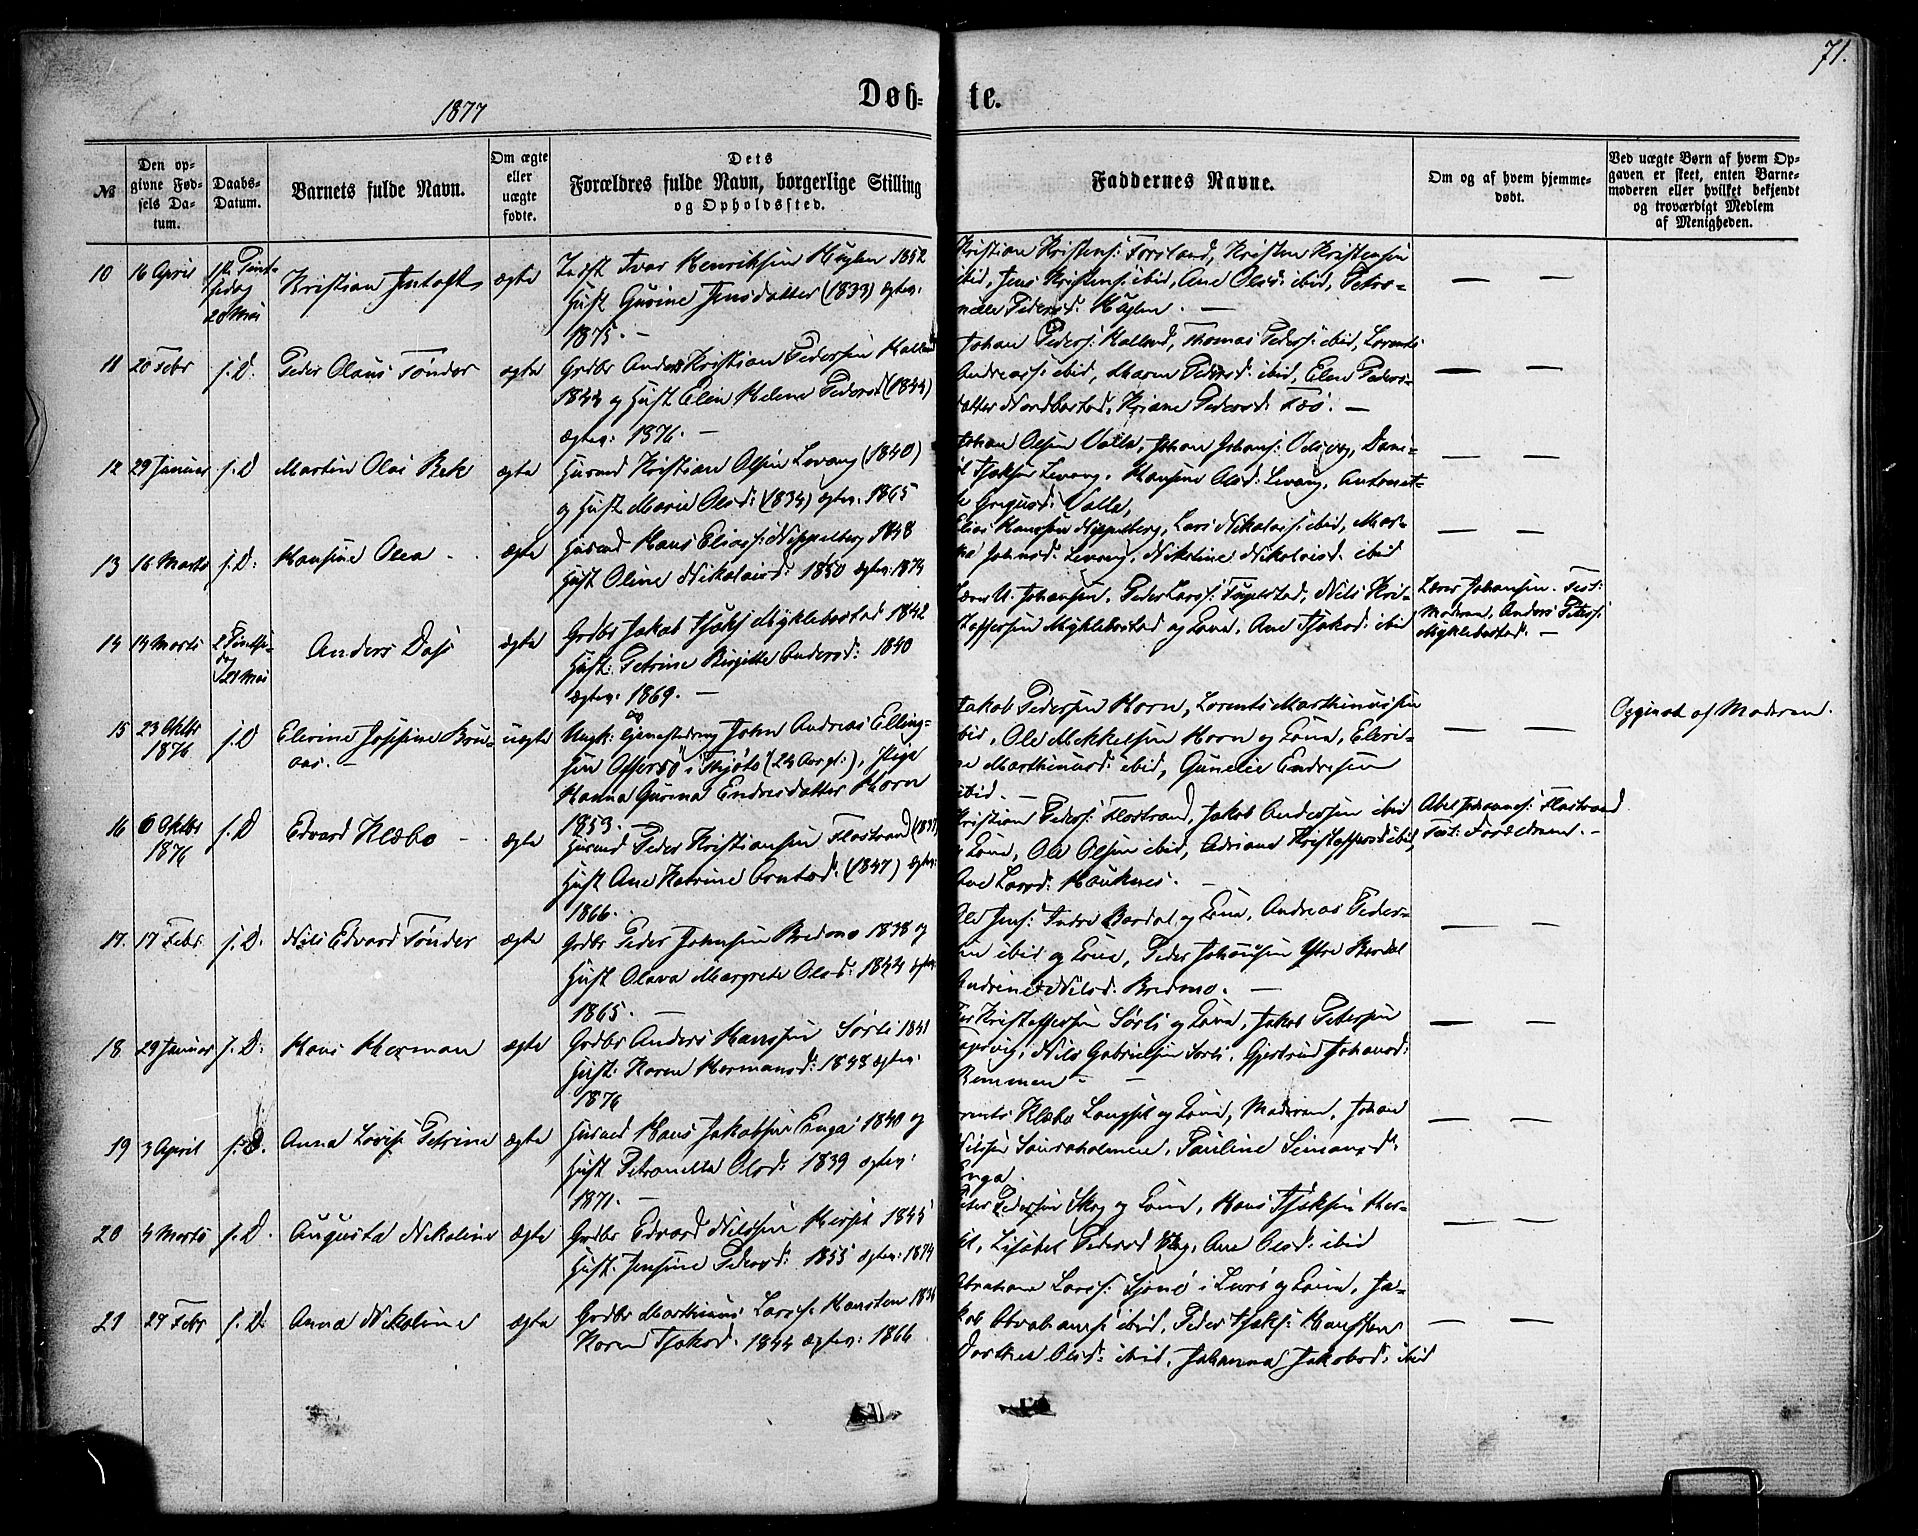 71.
1877
Døb- te.
№
Den op-
givne Fød-
sels Da-
tum.
Daabs-
Datum.
Barnets fulde Navn.
Om ægte
eller
uægte
fødte.
Dets
Forældres fulde Navn, borgerlige Stilling
og Opholdssted.
Faddernes Navne.
Om og af hvem hjemme-
døbt.
Ved uægte Børn af hvem Op-
gaven er skeet, enten Barne-
moderen eller hvilket bekjendt
og troværdigt Medlem
af Menigheden.
10 16 April
20 Mai
Kristian
ægte
Ivar Henriksen Huglen 1852
Hust Gurine Jensdatter (1833) ægtev:
1875. —
Kristian Kristens: Forsland, Kristen Kristensen
ibid, Jens Kristens: ibid, Ane Olsd: ibid, Petro-
nelle Pedersd: Huglen. —
— —
11 20 Febr s. D. Peder Olaus Tønder ægte
Grdbr Anders Kristian Pedersen
1844 og Hust Elen Helene Pedersd (1844)
ægtev: 1876. —
Johan Peders: Kalland, Thomas Peders: ibid, Lorents
Andreass: ibid, Maren Pedersd: ibid, Elen Peders-
datter Nordbostad, Kriane Pedersd:
— —
12 29 Januar s. D Martin Olai Bek ægte
Husmd Kristian Olsen Levang (1840)
og Hust Marie Olsd: (1834) ægtev: 1865
Johan Olsen Valla, Johan Johans: Dani-
el Isaksen Levang, Hansine Olsd: Levang, Antonet-
te Gregusd: Valle,
— —
13 16 Marts s. D: Hansine Olea - ægte
Husmd Hans Elias: Nippelberg 1848
Hust Oline Nikolaisd: 1850 ægtev: 1874
Elias Hanssen Nippelberg, Lars Nikolais: ibid, Mar-
Johnsd: Levang, Nikoline Nikolaisd: ibid
— —
14 14 Marts
21 Mai
Anders Dass
ægte
Grdbr Jakob Isaks Myklebostad 1842
Hust: Petrine Birgitte Andersd: 1840
ægtev: 1869. —
Johansen, Peder Larss: Fuglstad, Nils Kri-
stoffersen Myklebostad og Kona, Ane Isaksd: ibid
Lærer Johansen. Test:
Moderen, Anders Peters:
Myklebostad. —
15 23 Oktbr
1876
s. D Elerine Josefine Bru-
aas. — uægte
Ungk: og Tjenestedreng John Andreas Elling-
sen Offersø i Tjøtø (24 Aar gl:), Pige
Hanna Gurina Endresdatter Horn
1853. —
Jakob Pedersen Horn, Lorents Marthinussen
ibid, Ole Mikkelsen Horn og Kona, Eleri-
ne Marthinusd: ibid, Gunelie Endresen
ibid. —
— —
Opgivet af Moderen.
16 6 Oktbr
1876
s. D Edvard Klæbo - ægte
Husmd Peder Kristiansen Flostrand (1837)
Hust Ane Katrine Arntsd: (1847) ægtev:
1866.
Kristian Peders: Flostrand, Jakob Andersen ibid
og Kona, Ole Olsen ibid, Adriane Kristoffersd ibid,
Ane Larsd: Hauknes. —
Abel Johans: Flostrand
Test: Forældrene. —
17. 17 Febr. s. D. Nils Edvard Tønder ægte
Grdbr Peder Johnsen Bredmo 1838 og
Hust Olava Margrete Olsd: 1844 ægtev
1865. —
Ole Jens: Indre Bardal og Kona, Andreas Peder-
sen ibid og Kona, Peder Johansen Ytre Bardal
Andrine Nilsd: Bredmo. —
— —
18 29 Januar s. D: Hans Herman ægte
Grdbr Anders Hanssen Sørli 1841
Hust: Karen Hermansd: 1848 ægtev:
1876
Kristoffersen Sørli og Kona, Jakob Petersen
Nils Gabrielsen Sørli, Gjertrud Johansd:
Remmen —
— —
19 3 April s. D. Anna Lovise Petrine ægte
Husmd Hans Jakobsen Enga 1840 og
Hust Petronella Olsd: 1839 ægtev:
1871. —
Lorents Klæbo Langset og Kona, Moderen, Johan
Nilssen Sandholmen, Pauline Simonsd:
Enga.
— —
20 4 Marts s. D. Augusta Nikoline ægte
Grdbr Edvard Nilssen Herset 1845
Hust: Jensine Pedersd: 1855 ægtev: 1874
Peter Pedersen Skog og Kona, Hans Isaksen Her-
set, Lisabet Pedersd Skog, Ane Olsd: ibid
— —
21 27 Febr s. D: Anna Nikoline ægte
Grdbr Marthinus Larss: Hansten 1838
Karen Isaksd: 1844 ægtev: 1866.
Abraham Larss: Sjonø i Lurø og Kona, Ja-
kob Abrahams: ibid, Peder Isaks: Hansten
Dorthea Olsd: ibid, Johanna Jakobsd: ibid
— —